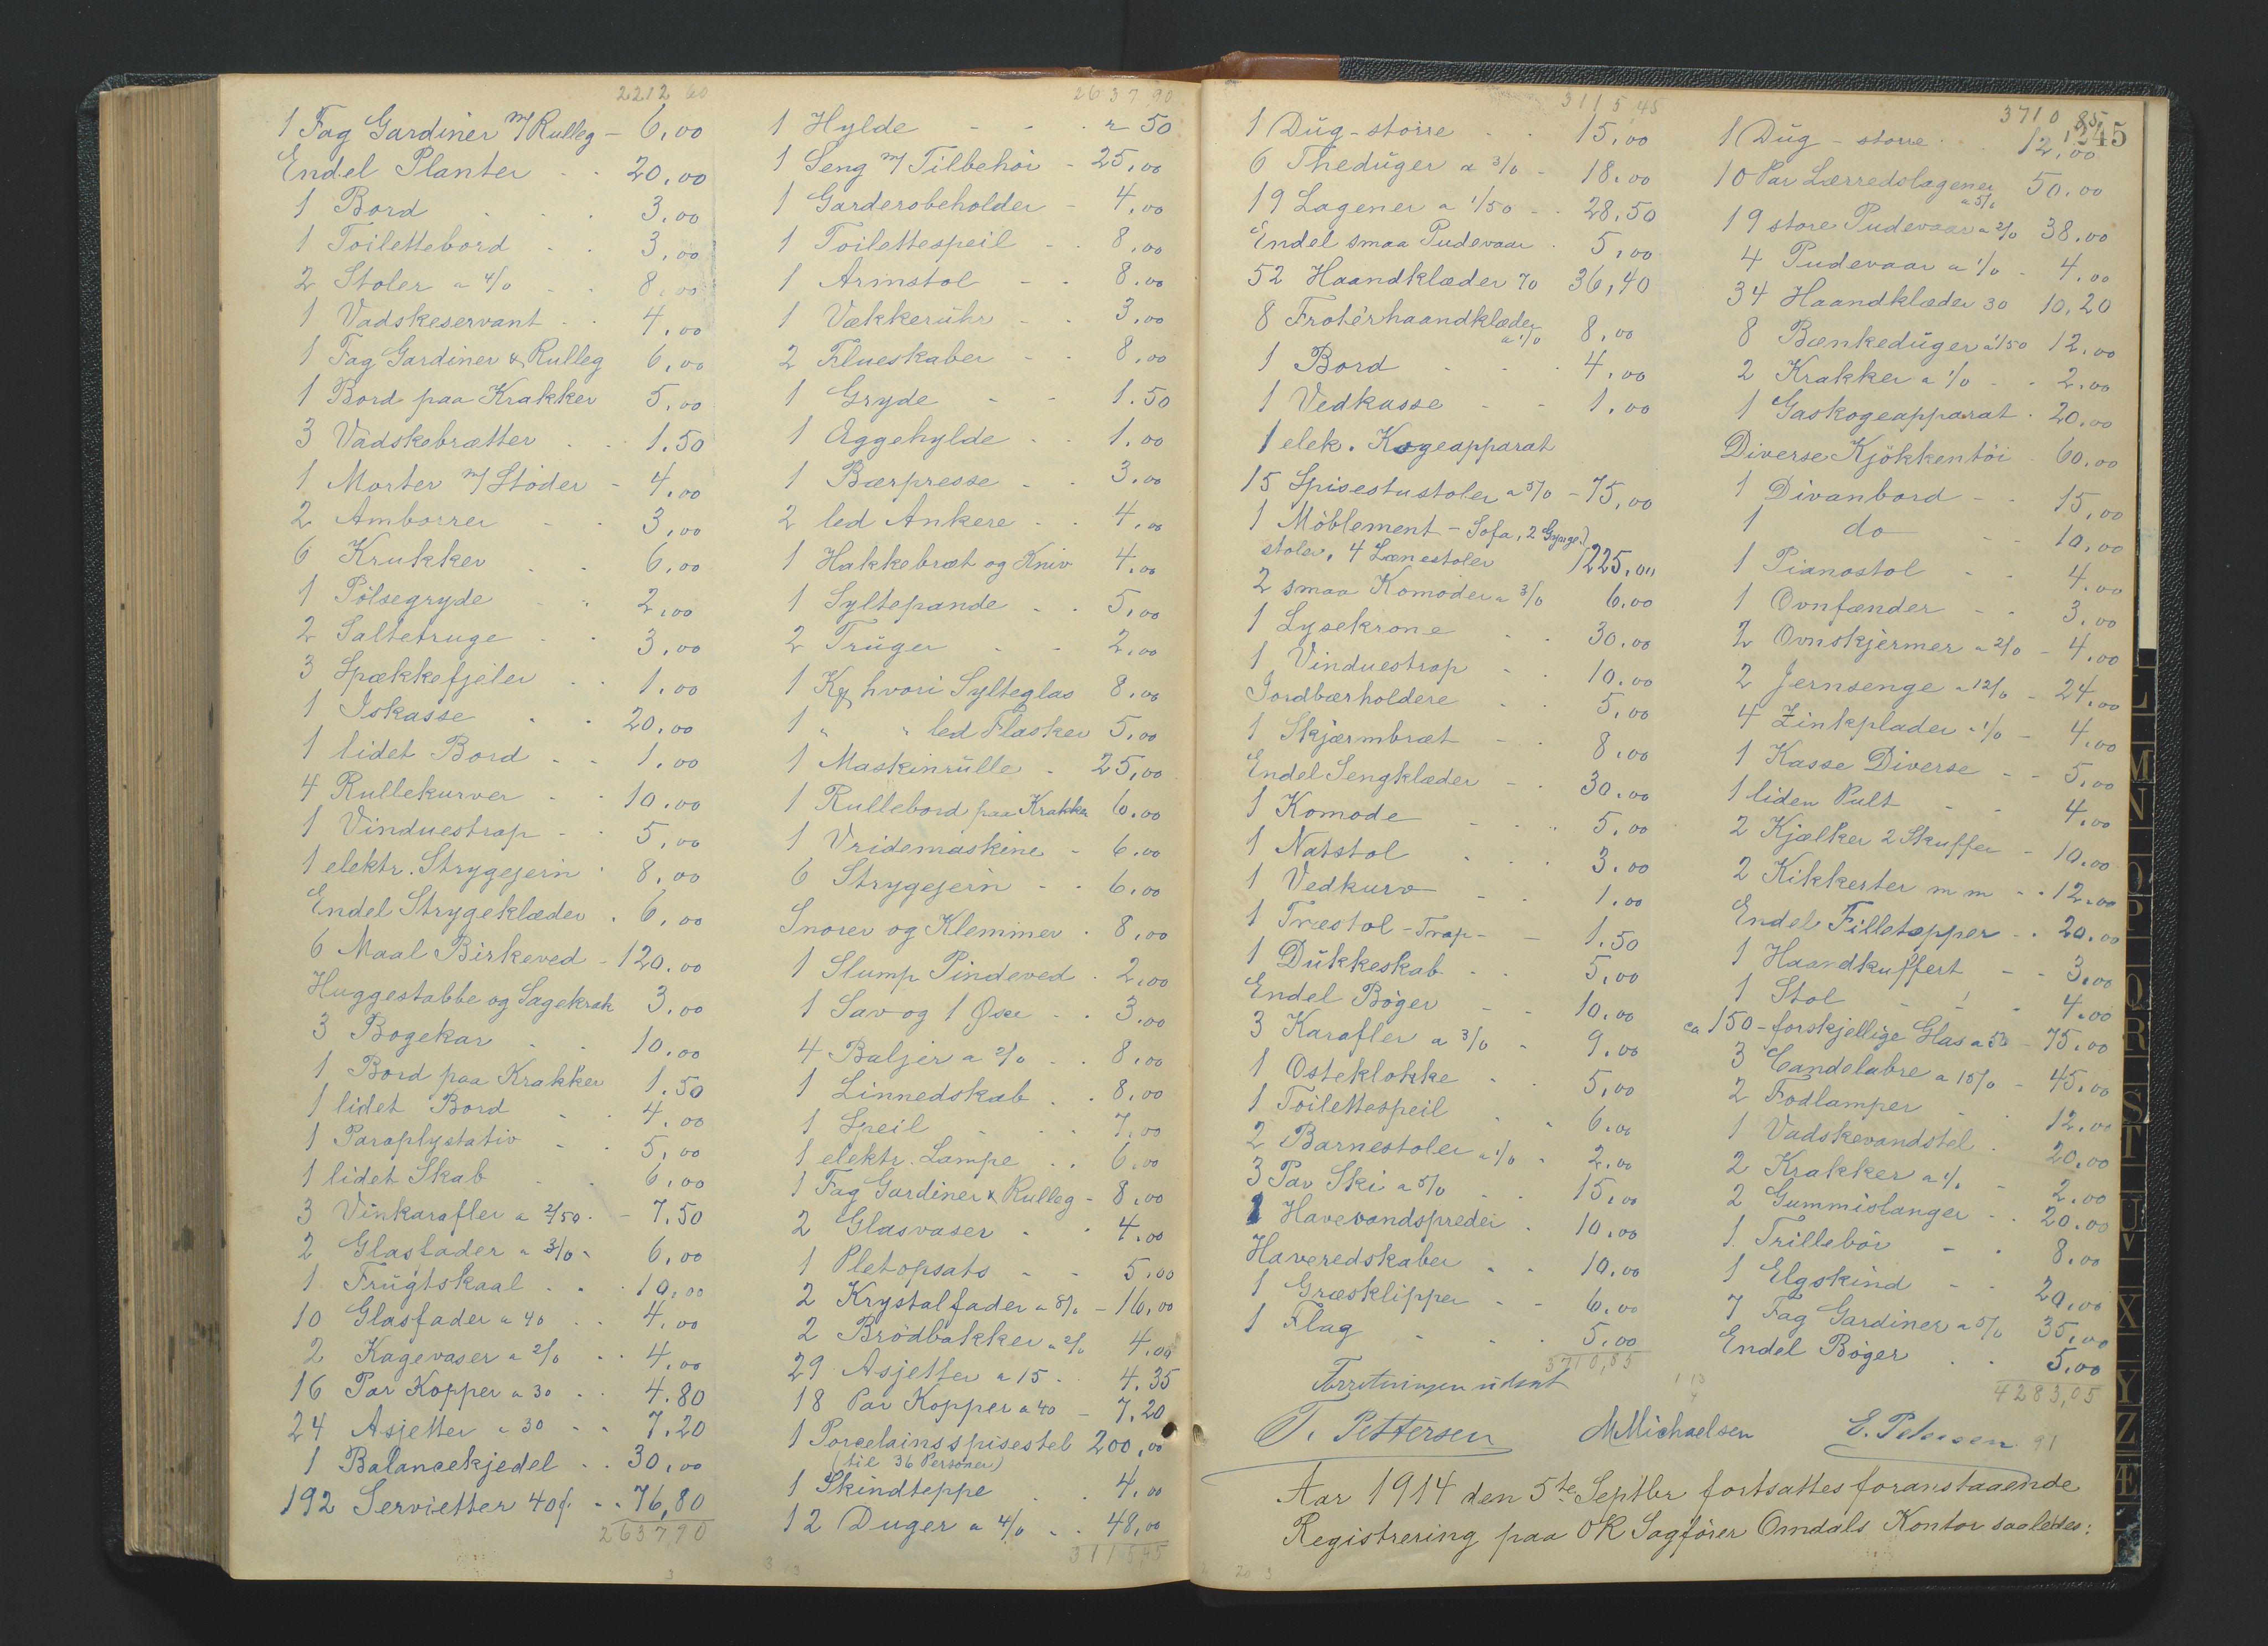 2212 60
1 Fag Gardiner m/ Rulleg - 6,00
Endel Planter - - 20,00
1 Bord - - 3,00
1 Toilettebord - - 3,00
2 Stoler a 4/0 - - 8,00
1 Vadskeservant - - 4,00
1 Fag Gardiner & Rulleg 6,00
1 Bord paa Krakker 5,00
3 Vadskebrætter - - 1.50
1 Morter m/ Stöder - 4,00
2 Amborrer - - 3,00
6 Krukker - - 6,00
1 Pölsegryde - - 2,00
2 Saltetruge - - 3,00
3 Spækkefjeler - - 1.00
1 Iskasse - - 20,00
1 lidet Bord - - 1,00
4 Rullekurver - - 10.00
1 Vinduestrap - - 5,00
1 elektr. Strygejern - 8,00
Endel Strygeklæder - 6,00
6 Maal Birkeved - 120.00
Huggestabbe og Sagekrak 3,00
3 Bogekar - - 10.00
1 Bord paa Krakker 1.50
1 lidet Bord - - 4.00
1 Paraplystativ - - 5,00
1 lidet Skab - - 6,00
3 Vinkarafler a 2/50 - - 7.50
2 Glasfader a 3/0 - 6,00
1 Frügtskaal - - 10,00
10 Glasfader a 40 - - 4,00
2 Kagevaser a 2/0 - - 4,00
16 Par Kopper a 30 - - 4.80
24 Asjetter a 30 - - 7.20
1 Balancekjedel - - 30,00
192 Servietter 40 - - 76,80
263790
2637 90
1 Hylde - - - 50
1 Seng m/ Tilbehör - 25,00
1 Garderobeholder - 4,00
1 Toilettespeil - - 8,00
1 Armstol - - 8.00
1 Vækkerühr - - 3,00
2 Flueskaber - - 8,00
1 Gryde - - 1.50
1 Æggehylde - - 1.00
1 Bærpresse - - 3.00
2 led Ankere - - 4,00
1 Hakkebræt og Kniv 4,00
1 Syltepande - - 5,00
2 Trüger - - 2,00
1 Kg hvori Sylteglas 8.00
1 " " led Flasker 5,00
1 Maskinrülle - 25,00
1 Rullebord paa Krakker 6.00
1 Vridemaskine - 6.00
6 Strygejern - - 6,00
Snorer og Klemmer - 8,00
1 Slump Pindeved - 2,00
1 Sav og 1 Øxe - - 3,00
4 Baljer a 2/0 - - 8,00
1 Linnedskab - - 8.00
1 Speil - - - 7,00
1 elektr. Lampe - - 6,00
1 Fag Gardiner & Rulleg - 8,00
2 Glasvaser - - 4,00
1 Pletopsats - - 5,00
2 Krystalfader a 8/0 - 16,00
2 Brödbakker a 2/0 4,00
29 Asjetter a 15 - 4.35
18 Par Kopper a 40 - 7,20
1 Porcelainsspisestel 200,00
(til 36 Personer)
1 Skindteppe - - 4.00
12 Duger a 4/0 - - 48,00
3115,45
3115,45
1 Düg - större - - 15,00
6 Thedüger a 3/0 - 18.00
19 Lagener a 1/50 - - 28,50
Endel smaa Pudevaar - 5,00
52 Haandklæder 70 36,40
8 Frotérhaandklæder a 1/0 8,00
1 Bord - - - 4,00
1 Vedkasse - - 1,00
1 elek. Kogeapparat
15 Spisestustoler a 5/0 - 75,00
1 Möblement - Sofa, 2 Gynge
stoler, 4 Lænestoler 225,00
2 smaa Komoder a 3/0 6.00
1 Lysekrone - - 30.00
1 Vinduestrap - 10.00
Jordbærholdere - - 5,00
1 Skjærmbræt - - 8.00
Endel Sengklæder - - 30.00
1 Komode - - - 5,00
1 Natstol - - - 3.00
1 Vedkurv - - 1.00
1 Træstol - Trap - - 1.50
1 Dükkeskab - - 5,00
Endel Böger - - 10.00
3 Karafler a 3/0 - 9.00
1 Osteklokke - - 5,00
1 Toilettespeil - - 6,00
2 Barnestoler a 1/0 - 2,00
3 Par Ski a 5/0 - - 15,00
1 Havevandspreder - 10.00
Haveredskaber - - 10.00
1 Græsklipper - - 6.00
1 Flag - - - 5.00
3710,85
3710 85
245
1 Dug - större - - 12,00
10 Par Lærredslagener a 5/0 50.00
19 store Pudevaar a 2/0 38,00
4 Pudevaar a 1/0 - 4.00
34 Haandklæder 30 10,20
8 Bænkedüger a 1/50 12.00
2 Krakker a 1/0 - - 2.00
1 Gaskogeapparat - 20,00
Diverse Kjökkentöi - 60.00
1 Divanbord - - 15,00
1 do - - 10,00
1 Pianostol - - 4,00
1 Ovnfænder - - 3,00
2 Ovnskjermer a 2/0 - 4,00
2 Jernsenge a 12/0 - 24,00
4 Zinkplader a 1/0 - 4,00
1 Kasse Diverse - - 5,00
1 liden Pult - - 4,00
2 Kjælker 2 Skuffer - 10.00
2 Kikkerter m m - - 12.00
Endel Filletepper - - 20.00
1 Haandkuffert - - 3,00
1 Stol - - - 4.00
ca 150 - forskjellige Glas a 50 - 75.00
3 Candelabre a 15/0 - 45,00
2 Fodlamper - - 12,00
1 Vadskevandstel - 20,00
2 Krakker a 1/0 - 2.00
2 Gummislanger - - 20.00
1 Trillebör - - 8.00
1 Elgskind - - 20,00
7 Fag Gardiner a 5/0 35,00
Endel Böger - - 5,00
4283,05
Forretningen udsat
T. Pettersen MMichaelsen E. Petersen 91
Aar 1914 den 5te Septbr fortsattes foranstaaende
Registrering paa OR Sagförer Omdals Kontor saaledes: